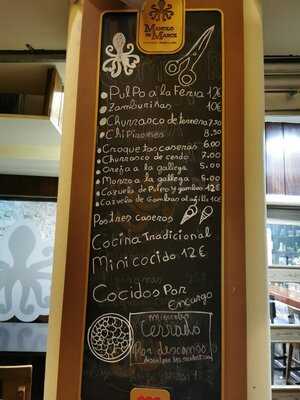 Manolo
de Marce
Pulpo a la Feria 12€
Zamburiñas 10€
Churrasco de ternera 7.50
Chipirones 8.50
Croquetas caseras 6.00
Churrasco de cerdo 7.00
Oreja a la gallega 5.00
Morro a la gallega 5.00
Cazuela de Pulpo y gambas 12€
Cazuela de Gambas al ajillo 10€
Postres Caseros
Cocina Tradicional
Minicocido 12€
Cocidos Por
Encargo
Miercoles
Cerrado
Por descanso